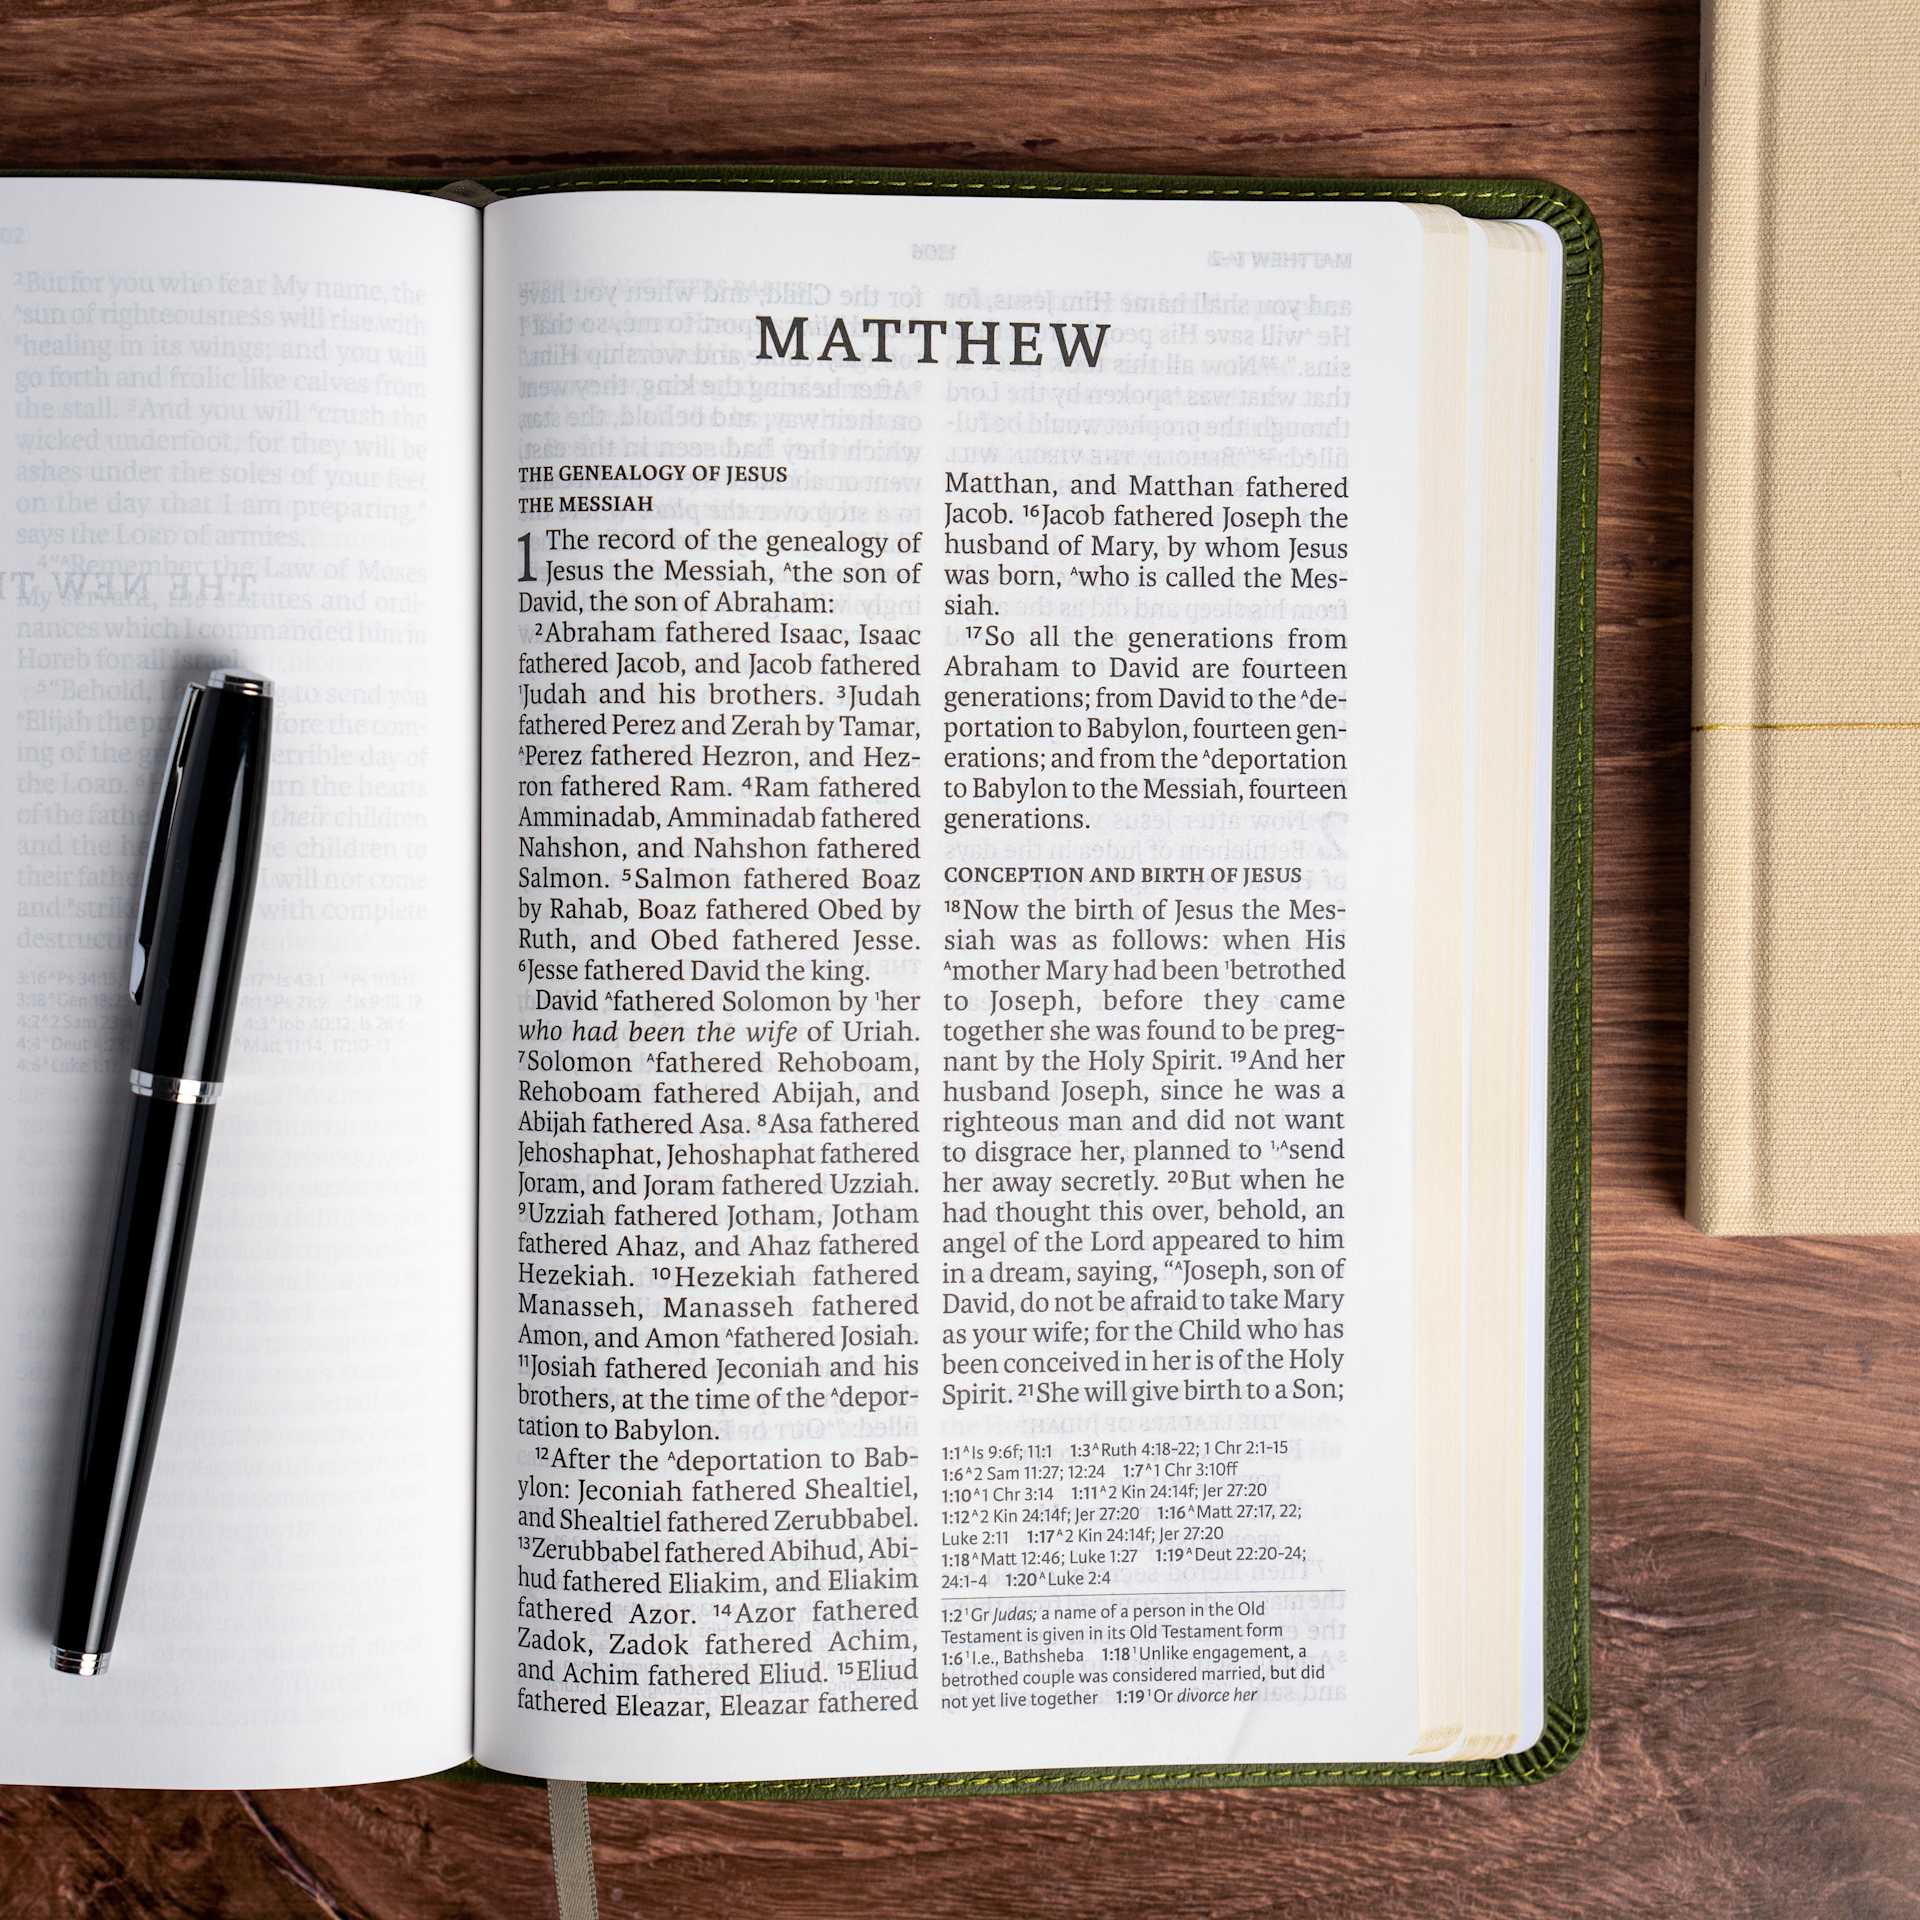 02
²But for you who fear My name, the
ᴬsun of righteousness will rise with
healing in its wings; and you will
go forth and frolic like calves from
the stall. ³And you will ᴬcrush the
wicked underfoot, for they will be
ashes under the soles of your feet
on the day that I am preparing,”
says the LORD of armies.
⁴“ᴬRemember the Law of Moses
My servant, the statutes and ordi-
nances which I commanded him in
Horeb for all Israel.
⁵“Behold, I to send you
Elijah the fore the com-
ing of the errible day of
the LORD. urn the hearts
of the their children
and the he children to
their I will not come
and with complete
MATTHEW
THE GENEALOGY OF JESUS
THE MESSIAH
1 The record of the genealogy of
Jesus the Messiah, ᴬthe son of
David, the son of Abraham:
²Abraham fathered Isaac, Isaac
fathered Jacob, and Jacob fathered
¹Judah and his brothers. ³Judah
fathered Perez and Zerah by Tamar,
ᴬPerez fathered Hezron, and Hez-
ron fathered Ram. ⁴Ram fathered
Amminadab, Amminadab fathered
Nahshon, and Nahshon fathered
Salmon. ⁵Salmon fathered Boaz
by Rahab, Boaz fathered Obed by
Ruth, and Obed fathered Jesse.
⁶Jesse fathered David the king.
David ᴬfathered Solomon by ¹her
who had been the wife of Uriah.
⁷Solomon ᴬfathered Rehoboam,
Rehoboam fathered Abijah, and
Abijah fathered Asa. ⁸Asa fathered
Jehoshaphat, Jehoshaphat fathered
Joram, and Joram fathered Uzziah.
⁹Uzziah fathered Jotham, Jotham
fathered Ahaz, and Ahaz fathered
Hezekiah. ¹⁰Hezekiah fathered
Manasseh, Manasseh fathered
Amon, and Amon ᴬfathered Josiah.
¹¹Josiah fathered Jeconiah and his
brothers, at the time of the ᴬdepor-
tation to Babylon.
¹²After the ᴬdeportation to Bab-
ylon: Jeconiah fathered Shealtiel,
and Shealtiel fathered Zerubbabel.
¹³Zerubbabel fathered Abihud, Abi-
hud fathered Eliakim, and Eliakim
fathered Azor. ¹⁴Azor fathered
Zadok, Zadok fathered Achim,
and Achim fathered Eliud. ¹⁵Eliud
fathered Eleazar, Eleazar fathered
Matthan, and Matthan fathered
Jacob. ¹⁶Jacob fathered Joseph the
husband of Mary, by whom Jesus
was born, ᴬwho is called the Mes-
siah.
¹⁷So all the generations from
Abraham to David are fourteen
generations; from David to the ᴬde-
portation to Babylon, fourteen gen-
erations; and from the ᴬdeportation
to Babylon to the Messiah, fourteen
generations.
CONCEPTION AND BIRTH OF JESUS
¹⁸Now the birth of Jesus the Mes-
siah was as follows: when His
ᴬmother Mary had been ¹betrothed
to Joseph, before they came
together she was found to be preg-
nant by the Holy Spirit. ¹⁹And her
husband Joseph, since he was a
righteous man and did not want
to disgrace her, planned to ¹·ᴬsend
her away secretly. ²⁰But when he
had thought this over, behold, an
angel of the Lord appeared to him
in a dream, saying, “ᴬJoseph, son of
David, do not be afraid to take Mary
as your wife; for the Child who has
been conceived in her is of the Holy
Spirit. ²¹She will give birth to a Son;
1:1 ᴬIs 9:6f; 11:1 1:3 ᴬRuth 4:18-22; 1 Chr 2:1-15
1:6 ᴬ2 Sam 11:27; 12:24 1:7 ᴬ1 Chr 3:10ff
1:10 ᴬ1 Chr 3:14 1:11 ᴬ2 Kin 24:14f; Jer 27:20
1:12 ᴬ2 Kin 24:14f; Jer 27:20 1:16 ᴬMatt 27:17, 22;
Luke 2:11 1:17 ᴬ2 Kin 24:14f; Jer 27:20
1:18 ᴬMatt 12:46; Luke 1:27 1:19 ᴬDeut 22:20-24;
24:1-4 1:20 ᴬLuke 2:4
1:2 ¹Gr Judas; a name of a person in the Old
Testament is given in its Old Testament form
1:6 ¹I.e., Bathsheba 1:18 ¹Unlike engagement, a
betrothed couple was considered married, but did
not yet live together 1:19 ¹Or divorce her